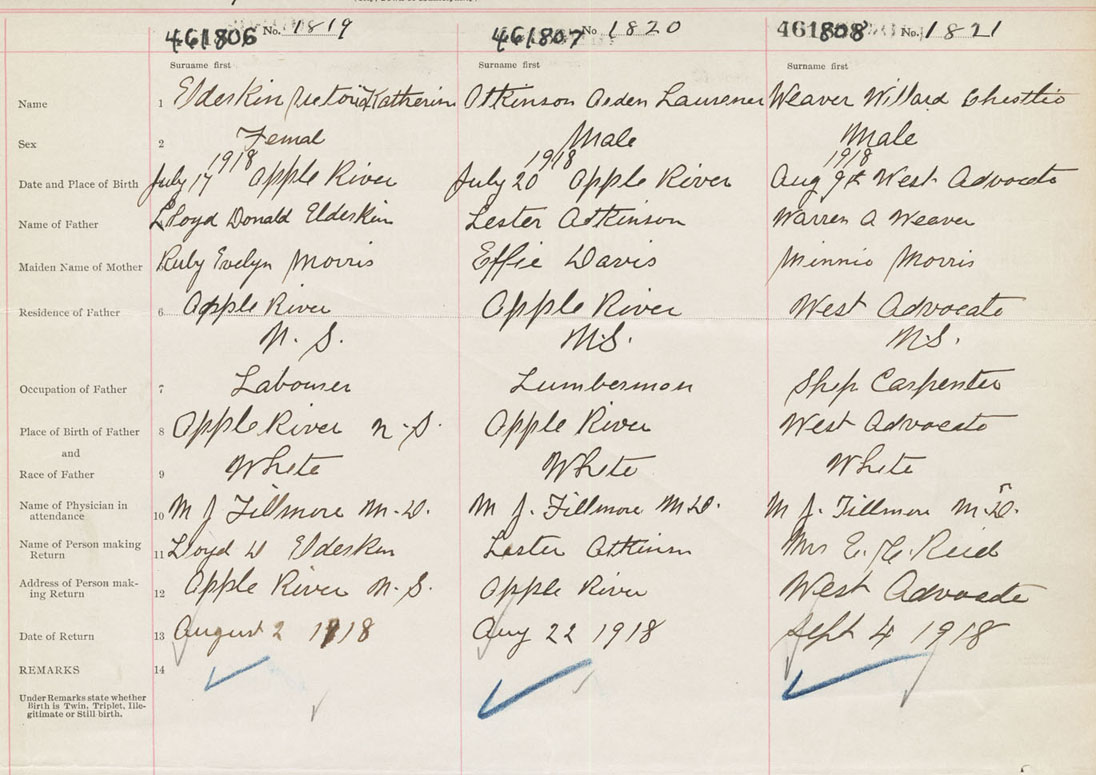 461806 No. 1819 461807 No 1820 461808 No. 1821
Surname first Surname first Surname first
Name 1 Elderkin Katherine Atkinson Arden Laurence Weaver Willard
Sex 2 Femal Male Male
1918 1918 1918
Date and Place of Birth July 17 Apple River July 20 Apple River Aug 9th West Advocate
Name of Father Lloyd Donald Elderkin Lester Atkinson Warren A Weaver
Maiden Name of Mother Ruby Evelyn Morris Effie Davis Minnie Morris
Residence of Father 6 Apple River Apple River West Advocate
N. S. N.S. N.S.
Occupation of Father 7 Labourer Lumberman Ship Carpenter
Place of Birth of Father 8 Apple River N-S. Apple River West Advocate
and
Race of Father 9 White White White
Name of Physician in
attendance 10 M J Fillmore M-D. M J. Fillmore M.D. M J. Fillmore M.D.
Name of Person making
Return 11 Lloyd D Elderkin Lester Atkinson Mrs E. Reid
Address of Person mak-
ing Return 12 Apple River N.S. Apple River West Advocate
Date of Return 13 August 2 1918 Aug 22 1918 Sept 4 1918
REMARKS 14
Under Remarks state whether
Birth is Twin, Triplet, Ille-
gitimate or Still birth.